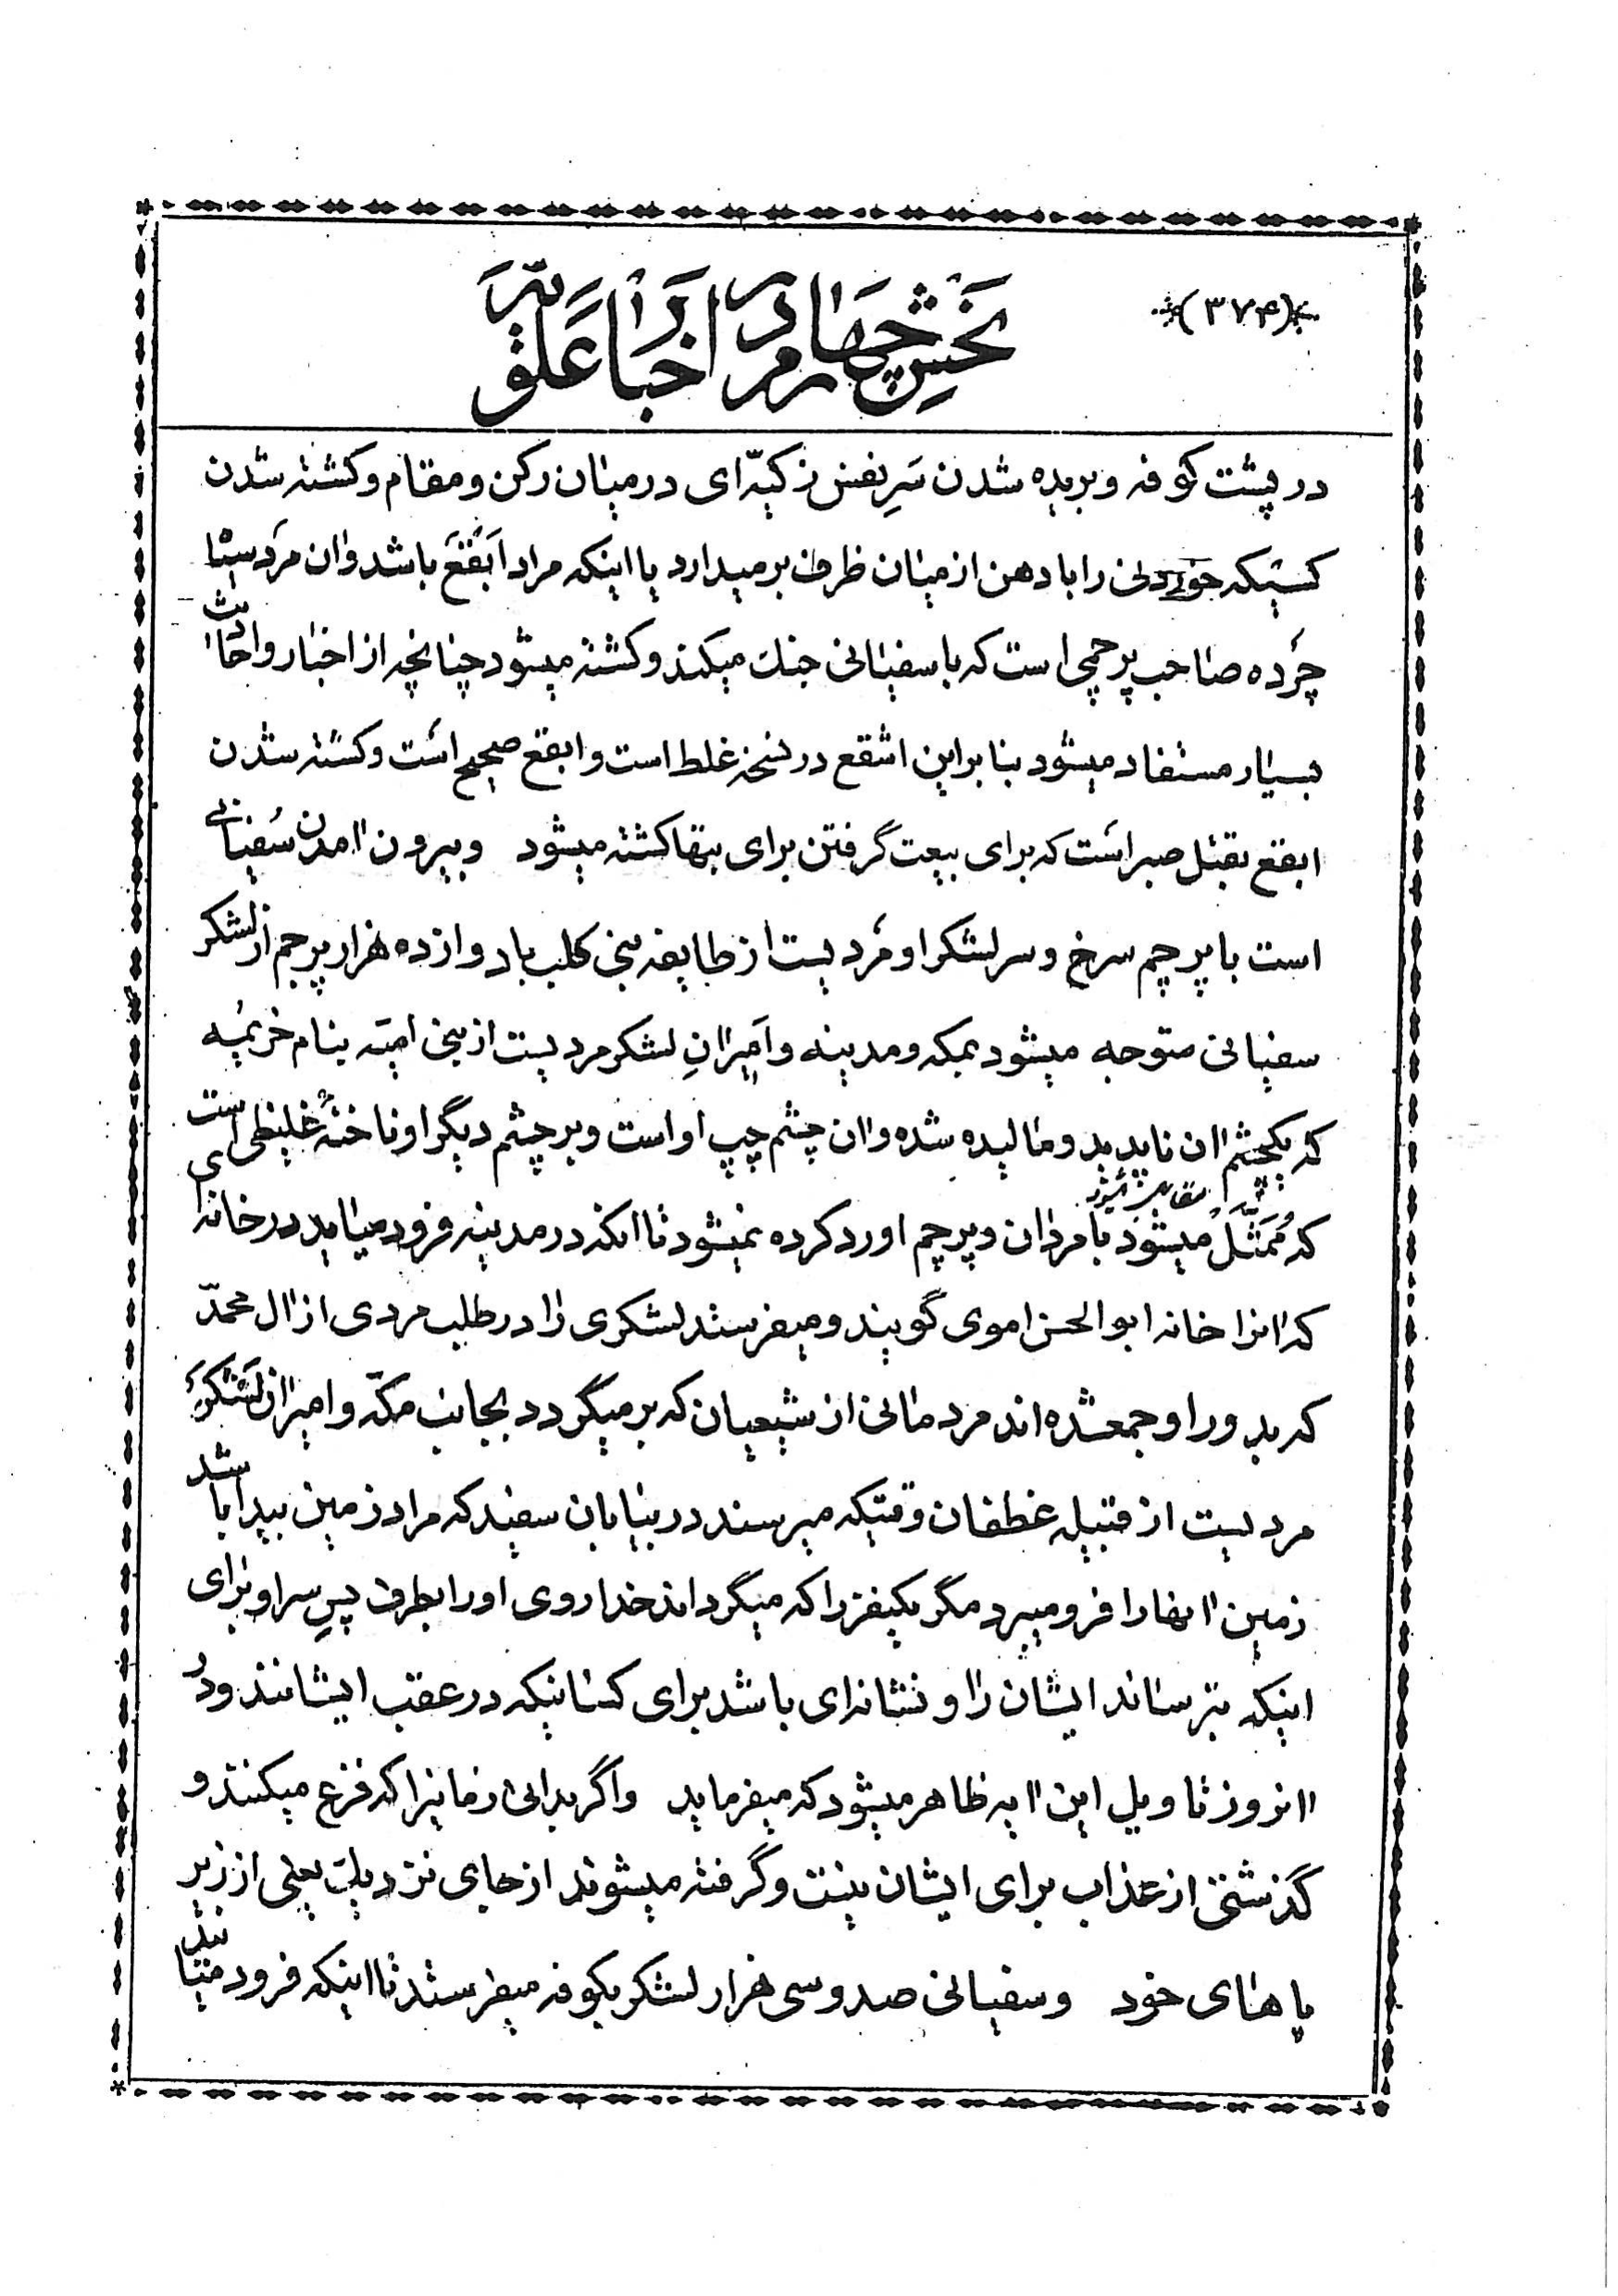 (۳۷۴)
بخش چهارم در اخبار علویّه
در پشت کوفه و بریده شدن سَرِ نفس زکیّه‌ای در میان رکن و مقام و کشته شدن
کسیکه خوردنی را با دهن از میان ظرف برمیدارد یا اینکه مراد اَبقَع باشد وان مرد سیاه
چرده صاحب پرچمی است که با سفیانی جنك میکند و کشته میشود چنانچه از اخبار واحادیث
بسیار مستفاد میشود بنا براین اشقع در نسخه غلط است و ابقع صحیح است و کشته شدن
ابقع بقتل صبر است که برای بیعت گرفتن برای بتها کشته میشود و بیرون امدن سُفیانی
است با پرچم سرخ و سر لشکر او مردیست از طایفه بنی کلب با دوازده هزار پرچم از لشکر
سفیانی متوجه میشود بمکه و مدینه و اَمیرانِ لشکر مردیست از بنی امیّه بنام خزیمه
که یکچشم ان ناپدید و مالیده شده وان چشم چپ او است و بر چشم دیگر او ناخنهٔ غلیظی است
که مُمَثَّل میشود بامردان و پرچم اورد کرده نمیشود تا انکه در مدینه فرود میاید در خانه‌ای
که انرا خانه ابوالحسن اموی گویند و میفرستد لشکری را در طلب مردی از ال محمّد
که بدور او جمعشده اند مردمانی از شیعیان که برمیگردد بجانب مکّه و امیر ان لشکر
مردیست از قبیله غطفان وقتیکه میرسند در بیابان سفید که مراد زمین بیدا باشد
زمین انها را فرو میبرد مگر یکنفر را که میگرداند خدا روی او را بطرف پسِ سر او برای
اینکه بترساند ایشان را و نشانه‌ای باشد برای کسانیکه در عقب ایشانند و در
انروز تاویل این ایه ظاهر میشود که میفرماید واگر به‌بینی زمانیرا که فزع میکنند و
گذشتن از عذاب برای ایشان نیست و گرفته میشوند از جای نزدیك یعنی از زیر
پاهای خود و سفیانی صد و سی هزار لشکر بکوفه میفرستد تا اینکه فرود میایند